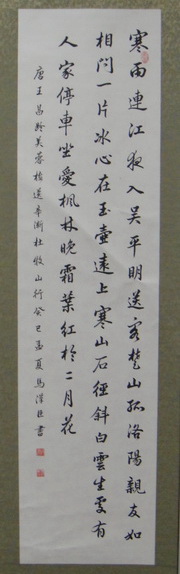 寒雨連江夜入吳平明送客楚山孤洛陽親友如
相問一片冰心在玉壺遠上寒山石徑斜白雲生處有
人家停車坐愛楓林晚霜葉紅於二月花
唐王昌齡芙蓉樓送辛漸杜牧山行癸巳孟夏馬漢臣書